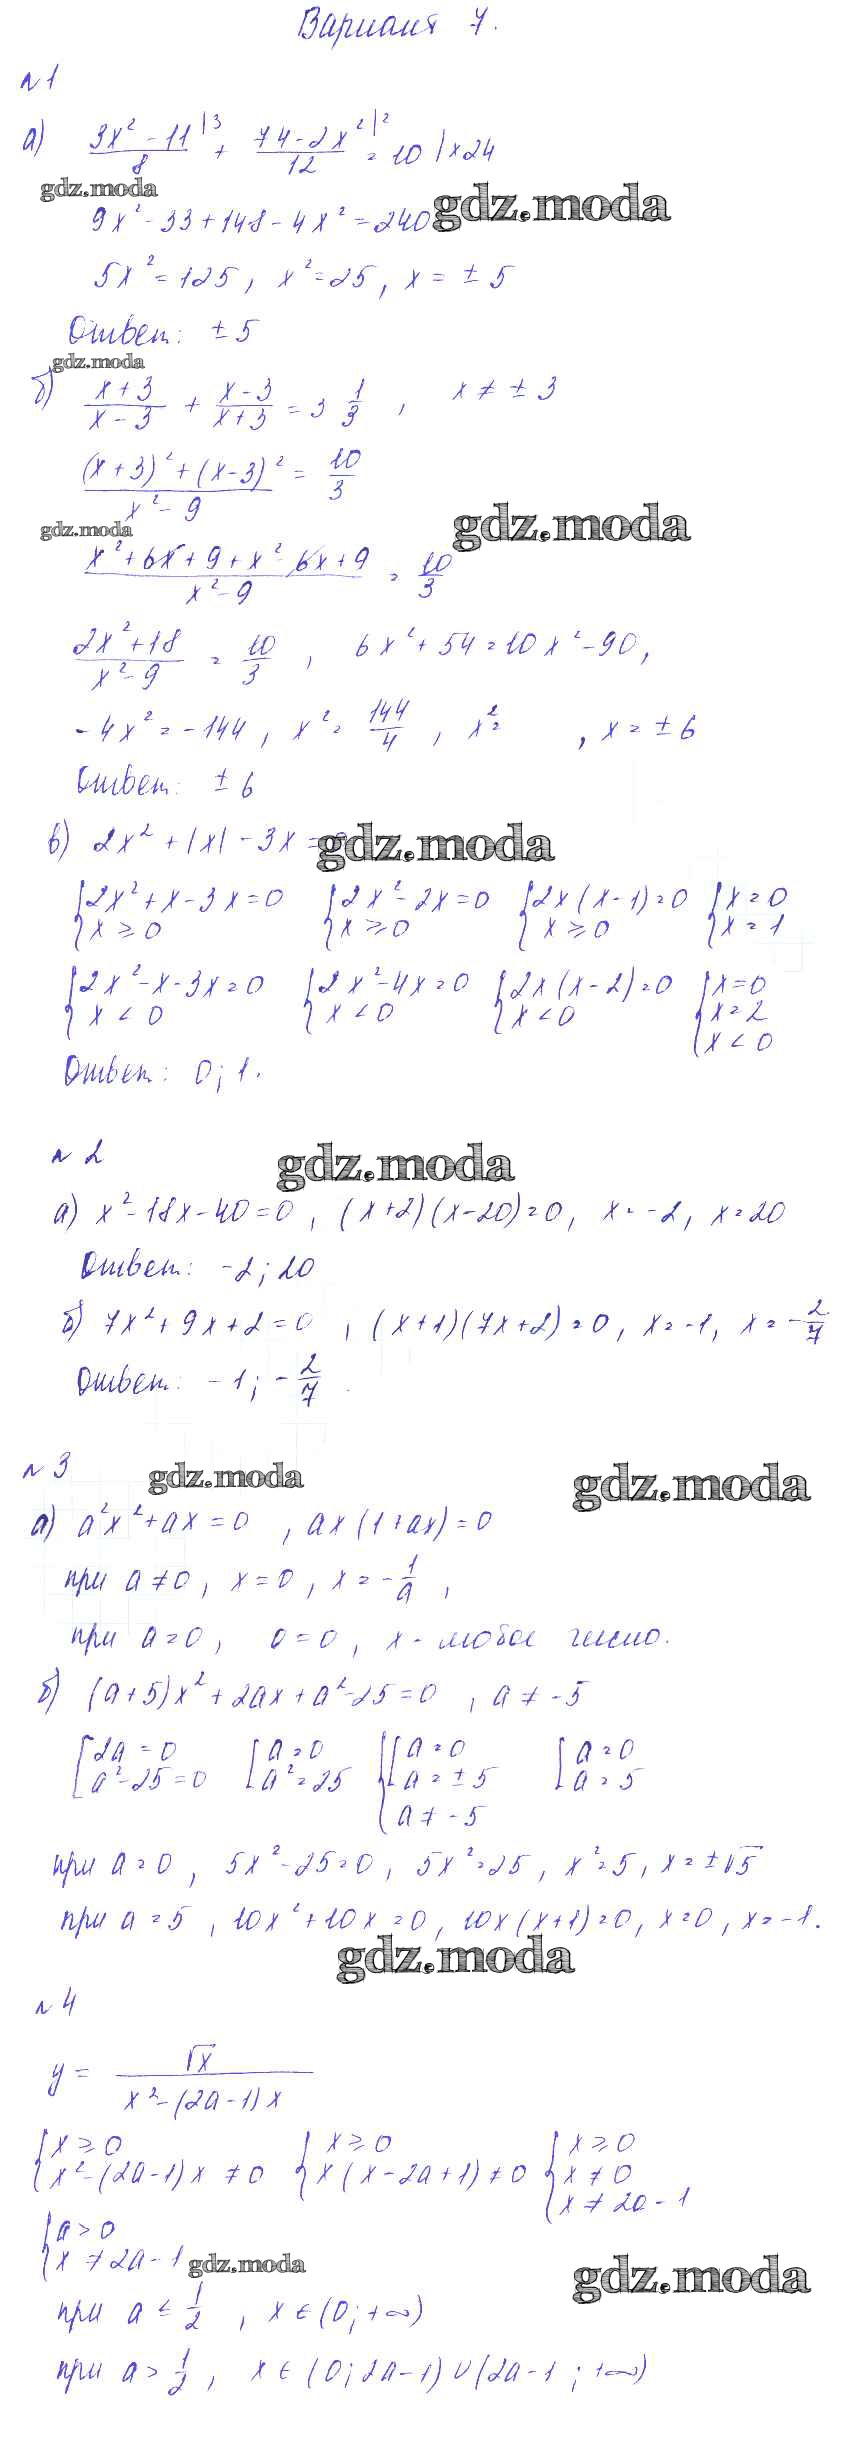 Вариант 7.
№1
а) (3x² - 11)/8 |3 + (74 - 2x²)/12 |2 = 10 | ×24
gdz.moda
gdz.moda
9x² - 33 + 148 - 4x² = 240
5x² = 125, x² = 25, x = ± 5
Ответ: ± 5
gdz.moda
б) (x + 3)/(x - 3) + (x - 3)/(x + 3) = 3 1/3, x ≠ ± 3
((x + 3)² + (x - 3)²)/(x² - 9) = 10/3
gdz.moda
gdz.moda
(x² + 6x + 9 + x² - 6x + 9)/(x² - 9) = 10/3
(2x² + 18)/(x² - 9) = 10/3, 6x² + 54 = 10x² - 90,
- 4x² = - 144, x² = 144/4, x² = , x = ± 6
Ответ: ± 6
в) 2x² + |x| - 3x = 0
gdz.moda
{2x² + x - 3x = 0 {2x² - 2x = 0 {2x (x - 1) = 0 {x = 0
x ≥ 0 x ≥ 0 x ≥ 0 x = 1
{2x² - x - 3x = 0 {2x² - 4x = 0 {2x (x - 2) = 0 {x = 0
x < 0 x < 0 x < 0 x = 2
x < 0
Ответ: 0; 1.
№ 2
gdz.moda
а) x² - 18x - 40 = 0, (x + 2)(x - 20) = 0, x = -2, x = 20
Ответ: -2; 20
б) 7x² + 9x + 2 = 0, (x + 1)(7x + 2) = 0, x = -1, x = - 2/7
Ответ: -1; - 2/7.
№ 3
gdz.moda
gdz.moda
а) a²x² + ax = 0, ax (1 + ax) = 0
при a ≠ 0, x = 0, x = - 1/a,
при a = 0, 0 = 0, x - любое число.
б) (a + 5)x² + 2ax + a² - 25 = 0, a ≠ - 5
[2a = 0 [a = 0 {[a = 0 [a = 0
a² - 25 = 0 a² = 25 a = ± 5 a = 5
a ≠ - 5
при a = 0, 5x² - 25 = 0, 5x² = 25, x² = 5, x = ± √5
при a = 5, 10x² + 10x = 0, 10x (x + 1) = 0, x = 0, x = -1.
gdz.moda
№ 4
y = √x/(x² - (2a - 1) x)
{x ≥ 0 {x ≥ 0 {x ≥ 0
x² - (2a - 1) x ≠ 0 x (x - 2a + 1) ≠ 0 x ≠ 0
x ≠ 2a - 1
{a > 0
x ≠ 2a - 1
gdz.moda
gdz.moda
при a ≤ 1/2, x ∈ (0; +∞)
при a > 1/2, x ∈ (0; 2a - 1) ∪ (2a - 1; +∞)